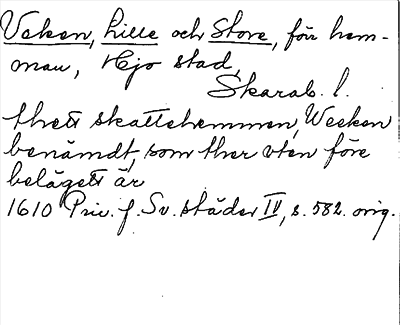 Veken, Lille och Store, förr hem-
man, Hjo stad,
Skarab. l.
thett skattehemmen, Weeken
benämdt, som ther uten före
belägett är
1610 Priv. f. Sv. städer IV, s. 582. orig.